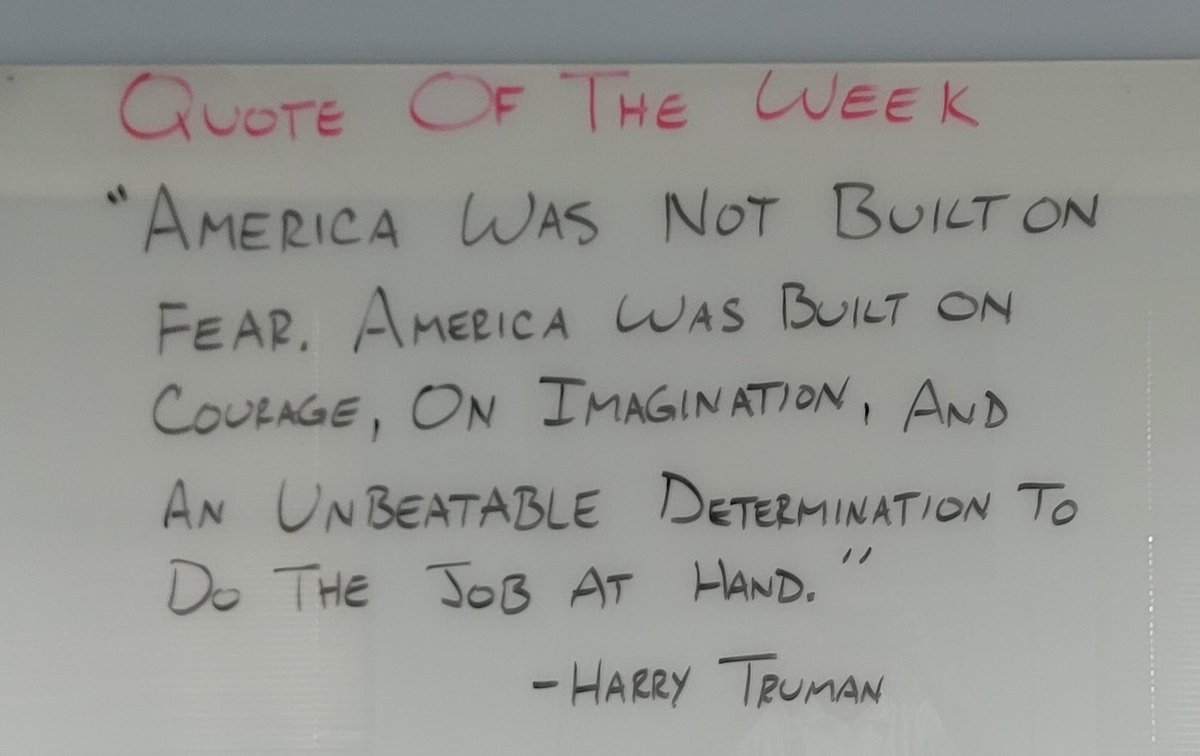 QUOTE OF THE WEEK
"AMERICA WAS NOT BUILT ON
FEAR. AMERICA WAS BUILT ON
COURAGE, ON IMAGINATION, AND
AN UNBEATABLE DETERMINATION TO
DO THE JOB AT HAND."
-HARRY TRUMAN